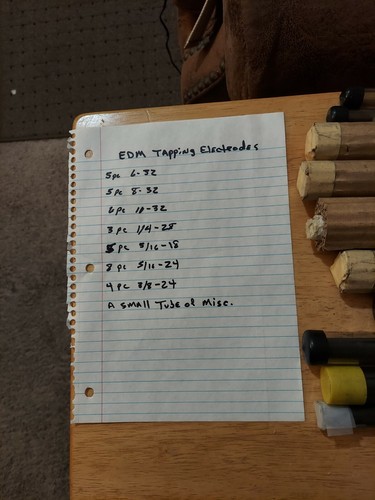 EDM Tapping Electrodes
5pc 6-32
5pc 8-32
6pc 10-32
3pc 1/4-28
5pc 5/16-18
8pc 5/16-24
4pc 3/8-24
A small Tube of misc.